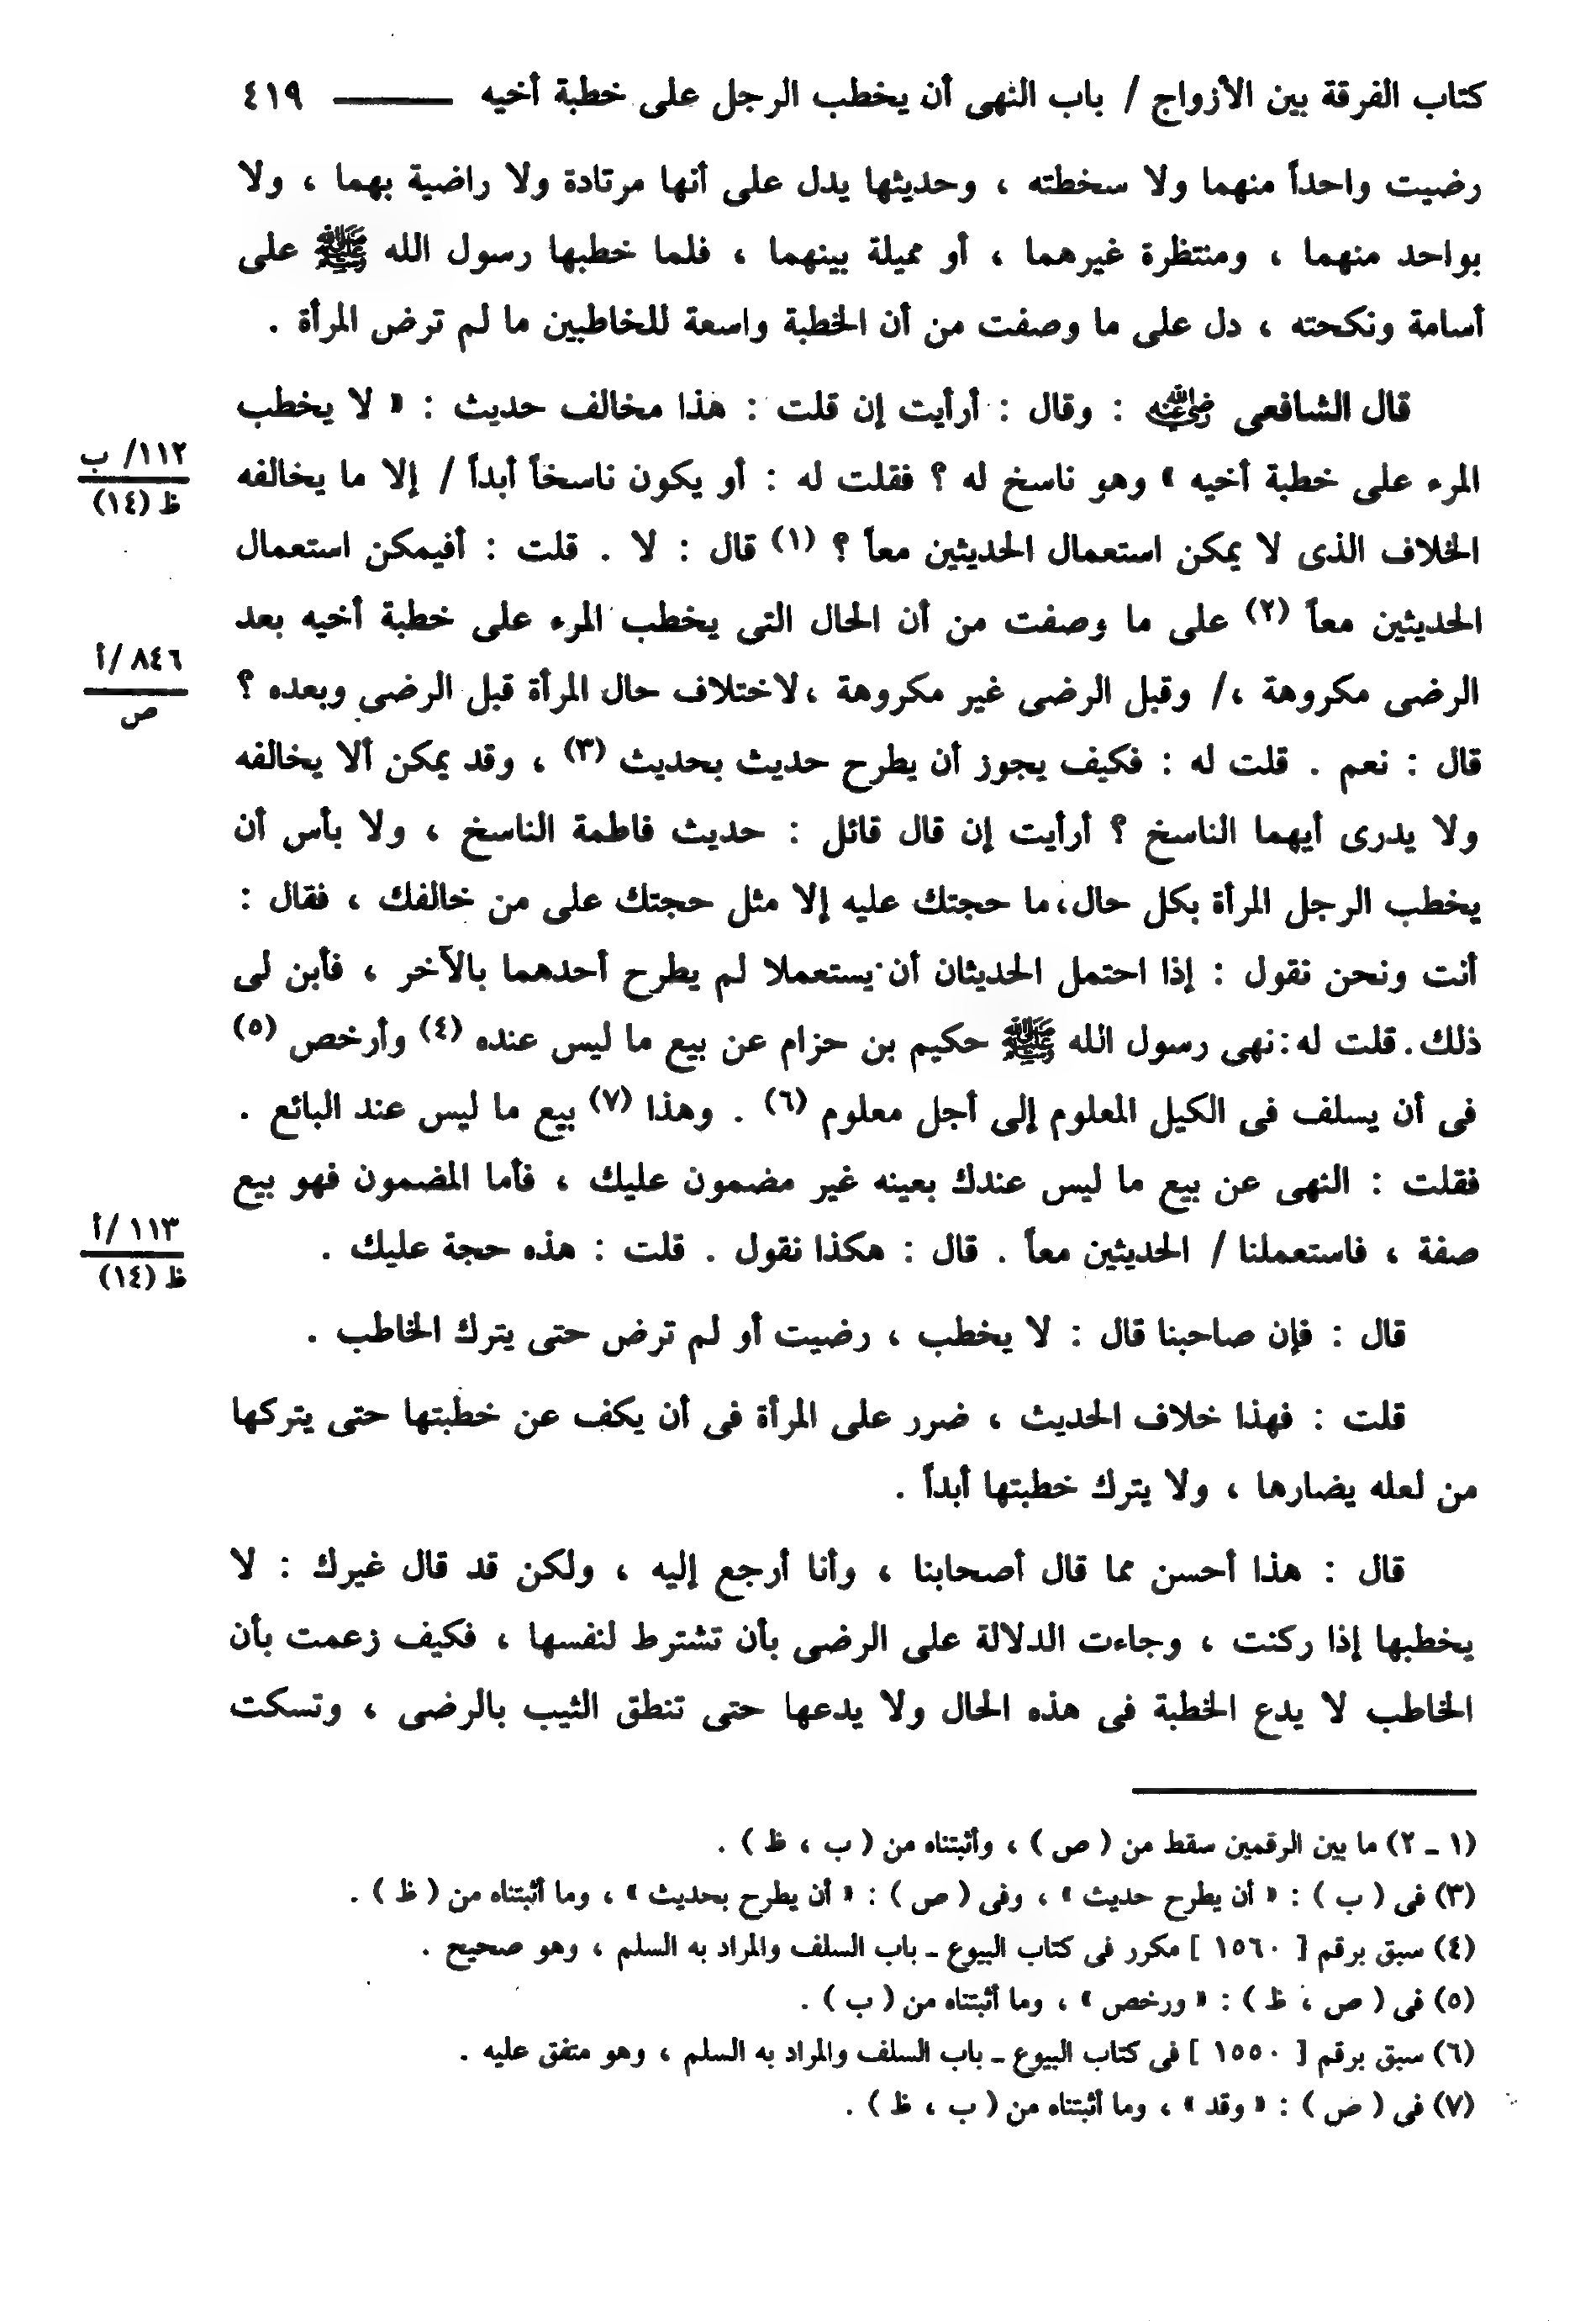 كتاب الفرقة بين الأزواج / باب النهى أن يخطب الرجل على خطبة أخيه ــــــ ٤١٩
رضيت واحداً منهما ولا سخطته ، وحديثها يدل على أنها مرتادة ولا راضية بهما ، ولا
بواحد منهما ، ومنتظرة غيرهما ، أو مميلة بينهما ، فلما خطبها رسول الله ﷺ على
أسامة ونكحته ، دل على ما وصفت من أن الخطبة واسعة للخاطبين ما لم ترض المرأة .
قال الشافعى رضي الله عنه : وقال : أرأيت إن قلت : هذا مخالف حديث : « لا يخطب
المرء على خطبة أخيه » وهو ناسخ له ؟ فقلت له : أو يكون ناسخاً أبداً / إلا ما يخالفه
١١٢/ ب
ظ (١٤)
الخلاف الذى لا يمكن استعمال الحديثين معاً ؟ (١) قال : لا . قلت : أفيمكن استعمال
الحديثين معاً (٢) على ما وصفت من أن الحال التى يخطب المرء على خطبة أخيه بعد
الرضى مكروهة ،/ وقبل الرضى غير مكروهة ،لاختلاف حال المرأة قبل الرضى وبعده ؟
٨٤٦ /أ
ص
قال : نعم . قلت له : فكيف يجوز أن يطرح حديث بحديث (٣) ، وقد يمكن ألا يخالفه
ولا يدرى أيهما الناسخ ؟ أرأيت إن قال قائل : حديث فاطمة الناسخ ، ولا بأس أن
يخطب الرجل المرأة بكل حال،ما حجتك عليه إلا مثل حجتك على من خالفك ، فقال :
أنت ونحن نقول : إذا احتمل الحديثان أن يستعملا لم يطرح أحدهما بالآخر ، فأبن لى
ذلك.قلت له:نهى رسول الله ﷺ حكيم بن حزام عن بيع ما ليس عنده (٤) وأرخص (٥)
فى أن يسلف فى الكيل المعلوم إلى أجل معلوم (٦) . وهذا (٧) بيع ما ليس عند البائع .
فقلت : النهى عن بيع ما ليس عندك بعينه غير مضمون عليك ، فأما المضمون فهو بيع
صفة ، فاستعملنا / الحديثين معاً . قال : هكذا نقول . قلت : هذه حجة عليك .
١١٣ /أ
ظ (١٤)
قال : فإن صاحبنا قال : لا يخطب ، رضيت أو لم ترض حتى يترك الخاطب .
قلت : فهذا خلاف الحديث ، ضرر على المرأة فى أن يكف عن خطبتها حتى يتركها
من لعله يضارها ، ولا يترك خطبتها أبداً .
قال : هذا أحسن مما قال أصحابنا ، وأنا أرجع إليه ، ولكن قد قال غيرك : لا
يخطبها إذا ركنت ، وجاءت الدلالة على الرضى بأن تشترط لنفسها ، فكيف زعمت بأن
الخاطب لا يدع الخطبة فى هذه الحال ولا يدعها حتى تنطق الثيب بالرضى ، وتسكت
(١ ـ ٢) ما بين الرقمين سقط من ( ص ) ، وأثبتناه من ( ب ، ظ ) .
(٣) فى ( ب ) : « أن يطرح حديث » ، وفى ( ص ) : « أن يطرح بحديث » ، وما أثبتناه من ( ظ ) .
(٤) سبق برقم [ ١٥٦٠ ] مكرر فى كتاب البيوع ـ باب السلف والمراد به السلم ، وهو صحيح .
(٥) فى ( ص ، ظ ) : « ورخص » ، وما أثبتناه من ( ب ) .
(٦) سبق برقم [ ١٥٥٠ ] فى كتاب البيوع ـ باب السلف والمراد به السلم ، وهو متفق عليه .
(٧) فى ( ص ) : « وقد » ، وما أثبتناه من ( ب ، ظ ) .